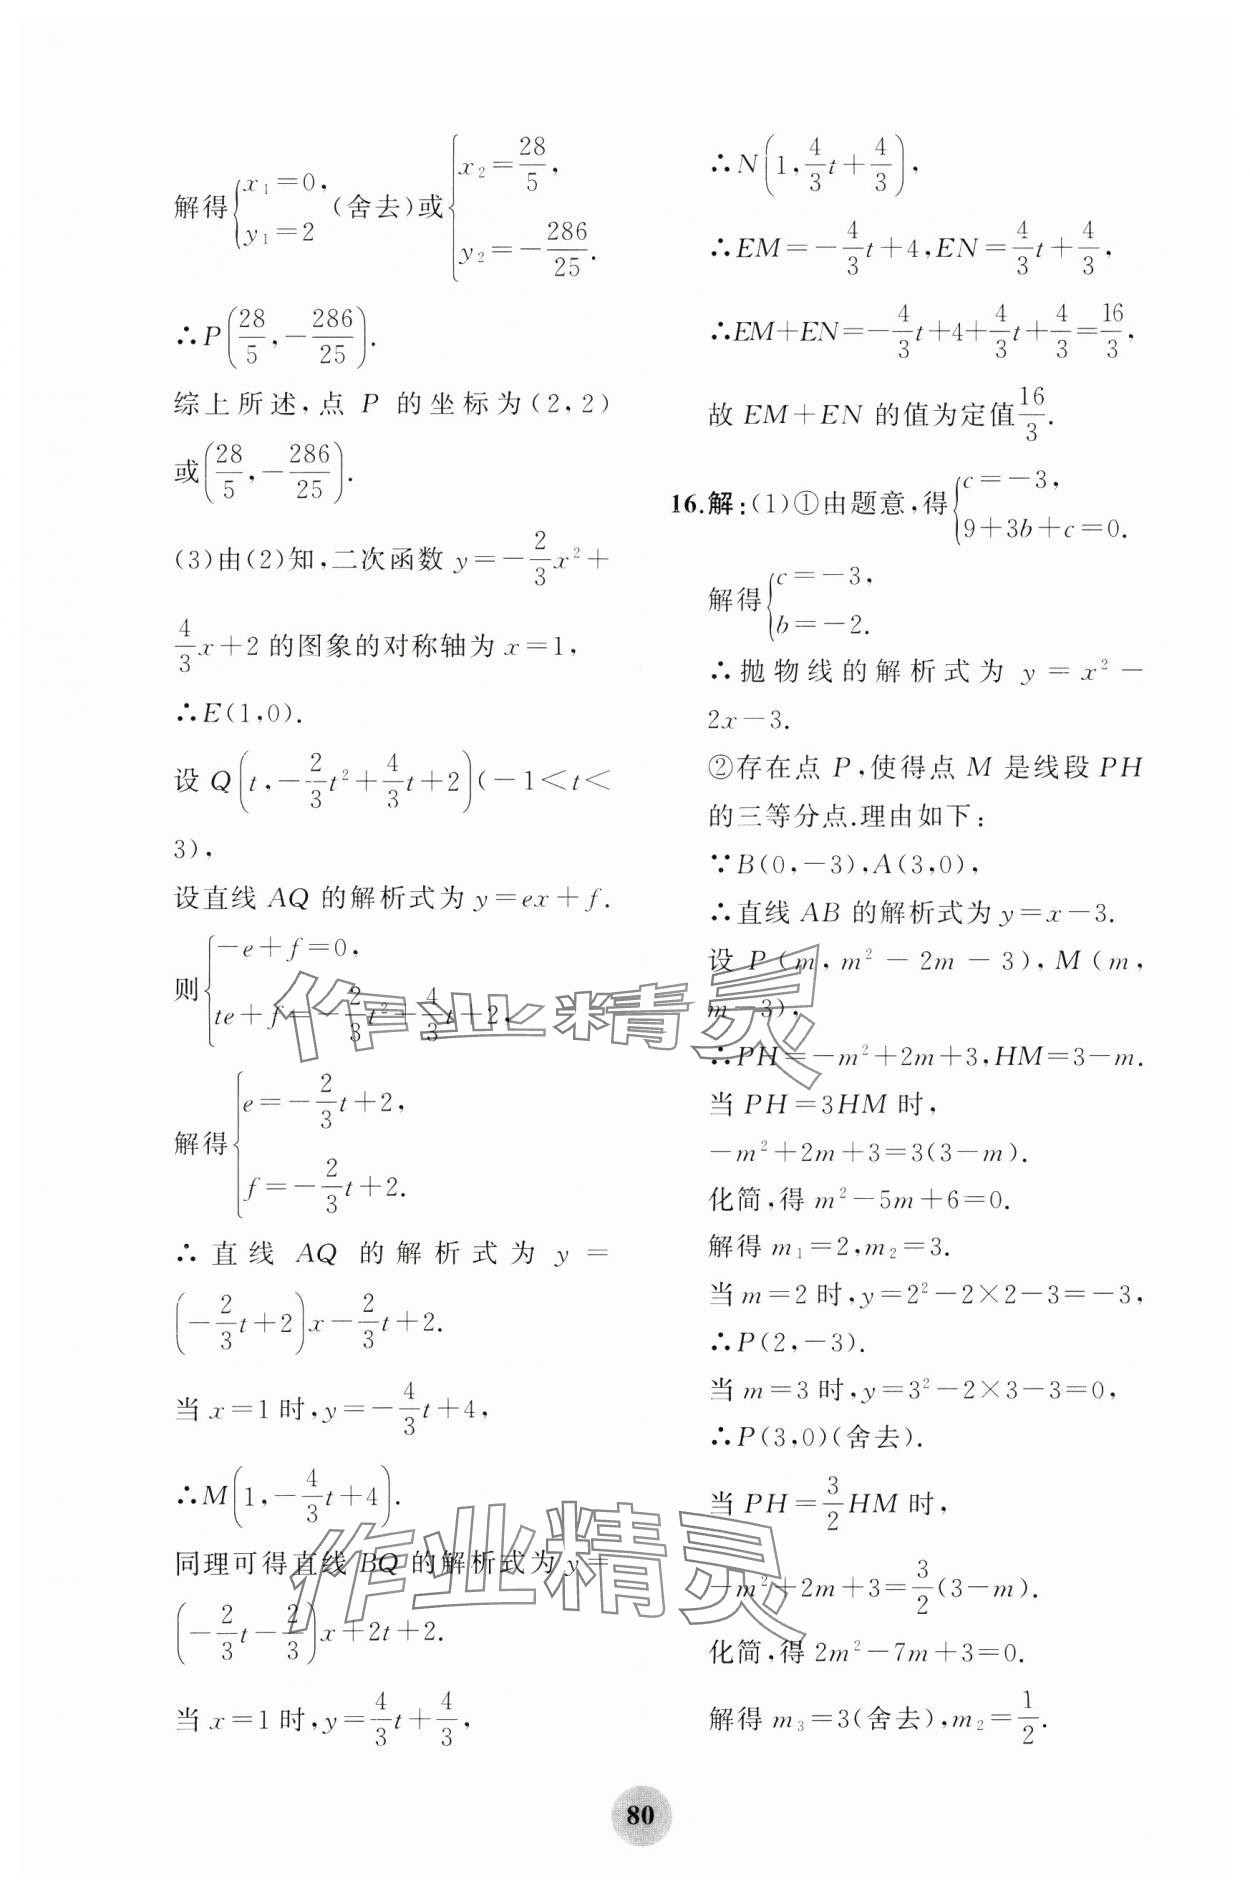 解得{x₁=0, y₁=2 (舍去)或{x₂=28/5, y₂=-286/25.
∴P(28/5,-286/25).
综上所述,点 P 的坐标为(2,2)
或(28/5,-286/25).
(3)由(2)知,二次函数 y=-2/3x²+
4/3x+2的图象的对称轴为 x=1,
∴E(1,0).
设 Q(t,-2/3t²+4/3t+2)(-1<t<
3),
设直线 AQ 的解析式为 y=ex+f.
则{-e+f=0, te+f=-2/3t²+4/3t+2,
解得{e=-2/3t+2, f=-2/3t+2.
∴直线 AQ 的解析式为 y=
(-2/3t+2)x-2/3t+2.
当 x=1时,y=-4/3t+4,
∴M(1,-4/3t+4).
同理可得直线 BQ 的解析式为 y=
(-2/3t-2/3)x+2t+2.
当 x=1时,y=4/3t+4/3,
∴N(1,4/3t+4/3),
∴EM=-4/3t+4,EN=4/3t+4/3,
∴EM+EN=-4/3t+4+4/3t+4/3=16/3,
故 EM+EN 的值为定值16/3.
16.解:(1)①由题意,得{c=-3, 9+3b+c=0.
解得{c=-3, b=-2.
∴抛物线的解析式为 y=x²-
2x-3.
②存在点 P,使得点 M 是线段 PH
的三等分点.理由如下:
∵B(0,-3),A(3,0),
∴直线 AB 的解析式为 y=x-3.
设 P(m,m²-2m-3),M(m,
m-3),
∴PH=-m²+2m+3,HM=3-m.
当 PH=3HM 时,
-m²+2m+3=3(3-m).
化简,得 m²-5m+6=0.
解得 m₁=2,m₂=3.
当 m=2时,y=2²-2×2-3=-3,
∴P(2,-3).
当 m=3时,y=3²-2×3-3=0,
∴P(3,0)(舍去).
当 PH=3/2HM 时,
-m²+2m+3=3/2(3-m).
化简,得 2m²-7m+3=0.
解得 m₃=3(舍去),m₂=1/2.
80
作业精灵
作业精灵